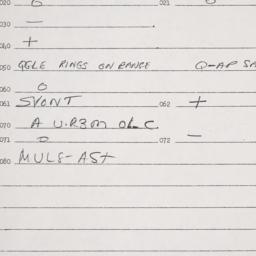 020 O 021 O
030 —
040 +
050 OGLE RINGS ON RANGE Q-AP SA
060 O
061 SVONT 062 +
070 A U.R3M OL C.
071 O 072 —
080 MULS-AST